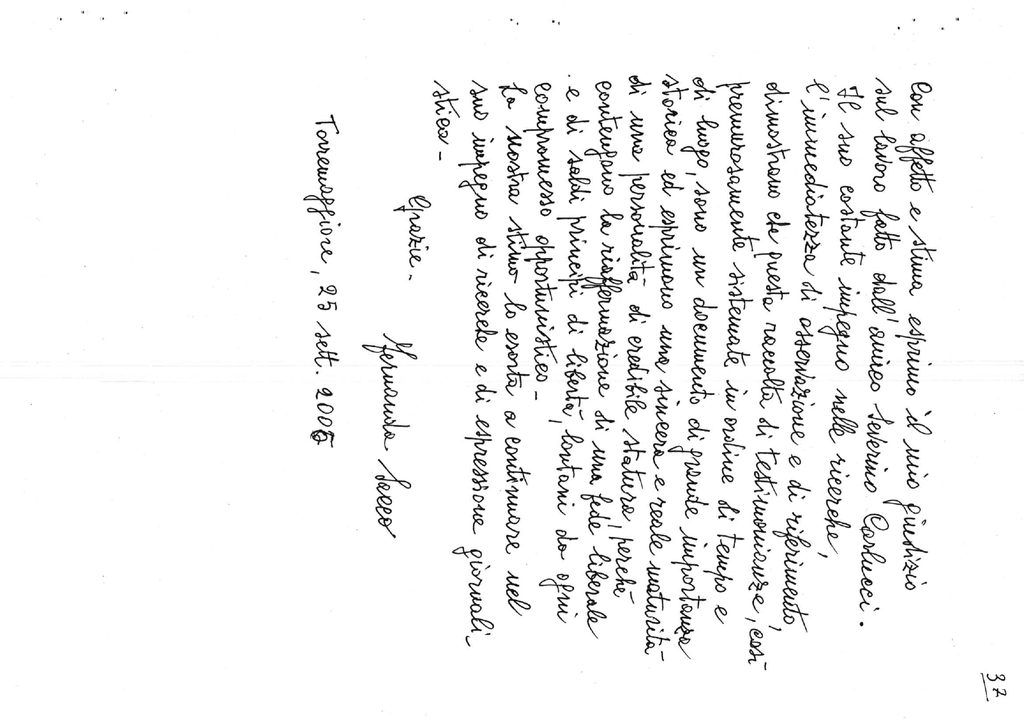 Con affetto e stima esprimo il mio giudizio
sul lavoro fatto dall'amico Severino Carlucci.
Il suo costante impegno nelle ricerche,
l'immediatezza di osservazione e di riferimento,
dimostrano che questa raccolta di testimonianze, così
premurosamente sistemate in ordine di tempo e
di luogo, sono un documento di grande importanza
storica ed esprimono una sincera e reale maturità
di una personalità di credibile statura, perchè
contengono la riaffermazione di una fede liberale
e di saldi principi di libertà, lontani da ogni
compromesso opportunistico-
La nostra stima lo esorta a continuare nel
suo impegno di ricerche e di espressione giornali-
stica-
Grazie-
Fernanda Sacco
Torremaggiore, 25 sett.
37